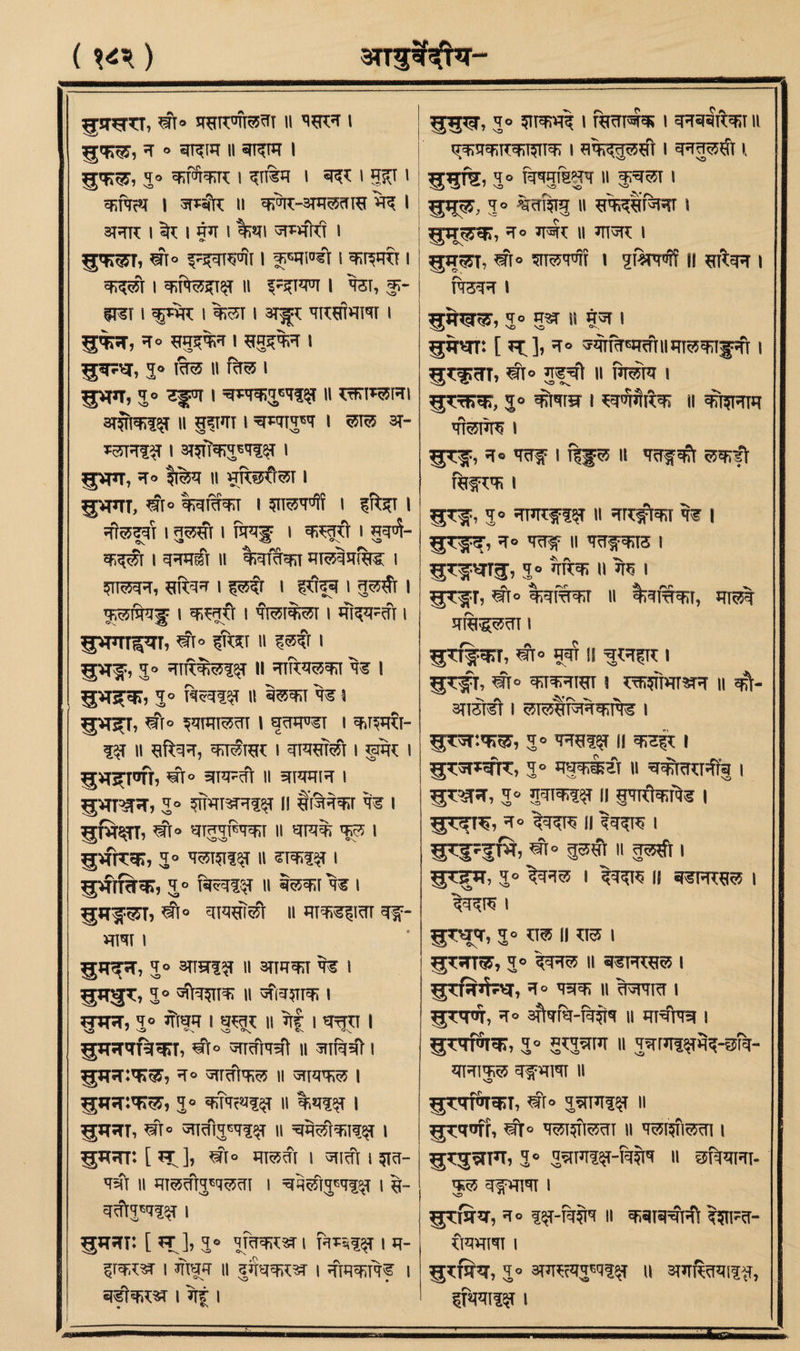 ( १८२ ) आयुर्वेदीय-
सुप्रसरा, स्त्री० प्रसारणीलता ॥ पसरन ।
सुफल, न ० बादाम ॥ बादाम ।
सुफल, पु० कर्णिकार । दाडिम । बदर । मुद्ग ।
कपित्थ । जम्बीर ॥ कणेर-अमलतास भेद ।
अनार । बेर । मूंग । कैथ । जम्भीरी ।
सुफला, स्त्री० इन्द्रवारुणी । कूष्माण्डी । काश्मरी ।
कदली । कपिलद्राक्षा ॥ इन्द्रायण । पेठा, कु-
म्हडा । कुम्भेर । केला । अङ्गूर पारसीभाषा ।
सुफेन, न० समुद्रफेन । समुद्रफेन ।
सुबन्ध, पु० तिल ॥ तिल ।
सुभग, पु० टङ्कण । चम्पकपुष्पवृक्ष ॥ रक्ताम्लान।
अशोकवृक्ष ॥ सुहागा । चम्पापुष्प । लाल अ-
म्लानवृक्ष । अशोकपुष्पवृक्ष ।
सुभग, न० शैलेय ॥ भूरिछरीला ।
सुभगा, स्त्री० कैवर्त्तिका । शालपर्णी । हरिद्रा ।
नीलदूर्वा । तुलसी । प्रियङ्गु । कस्तूरी । सुवर्ण-
कदली । वनमल्ली ॥ कैवर्त्तिका मालवप्रसिद्ध ।
शालवन, सरिवन । हलदी । हरीदूब । तुलसी ।
फूलप्रियङ्गु । कस्तूरी । पीलाकेला । सेवती ।
सुभगाह्वया, स्त्री० हरिद्रा ॥ हलदी ।
सुभङ्ग, पु० नारिकेलवृक्ष ॥ नारियलका पेड ।
सुभद्रक, पु० बिल्ववृक्ष ॥ बेलका पेड ।
सुभद्रा, स्त्री० श्यामालता । घृतमण्डा । काश्मरी-
वृक्ष ॥ सरिवन, कालीसर । वायसोली । कुम्भेर ।
सुभद्राणी, स्त्री० त्रायन्ती ॥ त्रायमान ।
सुभाञ्जन, पु० शोभाञ्जनवृक्ष ॥ सैंजिनेका पेड ।
सुभिक्षा, स्त्री० धातुपुष्पिका ॥ धायके फूल ।
सुभीरक, पु० पलाशवृक्ष ॥ ढाकवृक्ष ।
सुभूतिक, पु० बिल्ववृक्ष ॥ बेलका पेड ।
सुमङ्गला, स्त्री० वायसोली ॥ माकडहाता वङ्ग-
भाषा ।
सुमदन, पु० आम्रवृक्ष ॥ आमका पेड ।
सुमधुर, पु० जीवशाक ॥ जीवशाक ।
सुमन, पु० गोधूम । धुस्तूर ॥ गेहूं । धतूरा ।
सुमनपत्रिका, स्त्री० जातीपत्री ॥ जावित्री ।
सुमनःफल, न० जातीफल ॥ जायफल ।
सुमनःफल, पु० कपित्थवृक्ष ॥ कैथवृक्ष ।
सुमना, स्त्री० जातीपुष्पवृक्ष ॥ चमेलीकावृक्ष ।
सुमनाः [ स् ], स्त्री० मालती । जाती । शत-
पत्री ॥ मालतीपुष्पलता । चमेलीपुष्पवृक्ष । से-
वतीपुष्पवृक्ष ।
सुमनाः [ स् ], पु० पूतिकरञ्ज । निम्बवृक्ष । म-
हाकरञ्ज । गोधूम ॥ दुर्गंधकरञ्ज । नीमकापेड ।
बडीकरञ्ज । गेहूं ।
सुमुख, पु० शाकभेद । सितार्जक । वनबर्बरिका ॥
एकप्रकारकाशाक । सफेदतुलसी । वनतुलसी ।
सुमुष्टि, पु० विषमुष्टिक्षुप ॥ कुचला ।
सुमूल, पु० श्वेतशिग्रु ॥ सफेदसैंजिना ।
सुमूलक, न० गाजर ॥ गाजर ।
सुमूला, स्त्री० शालपर्णी । पृश्निपर्णी ॥ सरिवन ।
पिठवन ।
सुमेखल, पु० मुञ्ज ॥ मूंज ।
सुमेधाः [ स् ], स्त्री० ज्योतिष्मती॥मालकाङ्गुनी ।
सुरकृता, स्त्री० गुडूची ॥ गिलोय ।
सुरक्तक, पु० कोशाम्र । स्वर्णगैरिक ॥ कोशमआम
पीलागेरू ।
सुरङ्ग, न० पतङ्ग । हिङ्गुल ॥ पतङ्गकी लकडी
सिङ्गरफ ।
सुरङ्ग, पु० नागरङ्गवृक्ष ॥ नारङ्गीका पेड ।
सुरङ्गद, न० पतङ्ग ॥ पतङ्गकाठ ।
सुरङ्गधातु, पु० गैरिक ॥ गेरू ।
सुरङ्गा, स्त्री० कैवर्तिका ॥ कैवर्तिका, मालवे
प्रसिद्धलता ।
सुरङ्गिका, स्त्री० मूर्वा ॥ चुरनहार ।
सुरङ्गी, स्त्री० काकनासा । रक्तशोभाञ्जन ॥ कौ-
आठोठी । लालसैंजिनेकापेड ।
सुरजःफल, पु० पनसवृक्ष ॥ कटहर ।
सुरञ्जन, पु० गुवाकवृक्ष ॥ सुपारीकापेड ।
सुरदारु, न० देवदारु ॥ देवदारु ।
सुरदुन्दुभि, स्त्री० तुलसी ॥ तुलसी ।
सुरद्रुम, पु० देवनल । देवदारु ॥ बडानरसल ।
देवदारु ।
सुरधूप, पु० राल ॥ राल ।
सुरनाल, पु० देवनल ॥ बडानरसल ।
सुरनिर्गन्ध, न० पत्रक ॥ तेजपात ।
सुरपर्ण, न० ओषधि-विशेष ॥ माचीपत्र ।
सुरपर्णिक, पु० सुरपुन्नाग ॥
सुरपर्णिका, स्त्री० पुन्नागवृक्ष ॥
सुरपर्णी, स्त्री० पलाशीलता ॥ पलाशीलता ।
सुरपुन्नाग, पु० पुन्नागवृक्ष-विशेष ॥
वङ्गभाषा ।
सुरप्रिय, न० वृक्ष-विशेष ॥ कबाबचीनी देशान्त-
रीयभाषा ।
सुरप्रिय, पु० अगस्त्यपुष्पवृक्ष ॥ अगस्तियावृक्ष,
हथियावृक्ष ।